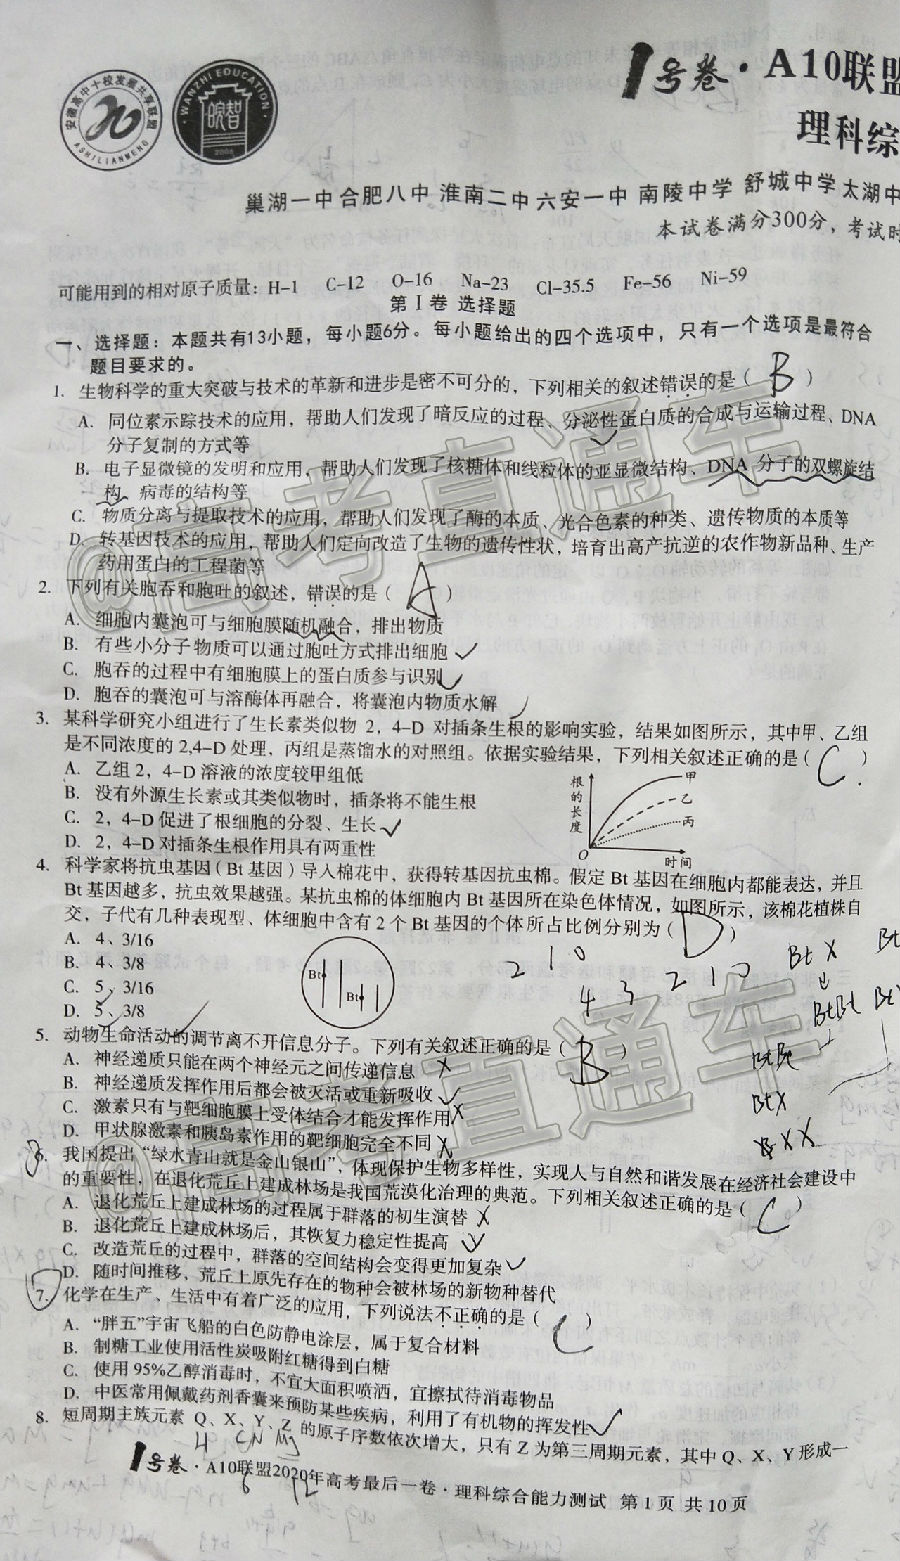 安徽高中十校发展共享联盟
ASHILIANMENG
WANZHI EDUCATION
皖智
1号卷·A10联盟
理科综
巢湖一中 合肥八中 淮南二中 六安一中 南陵中学 舒城中学 太湖中
本试卷满分300分，考试时
可能用到的相对原子质量：H-1 C-12 O-16 Na-23 Cl-35.5 Fe-56 Ni-59
第Ⅰ卷 选择题
一、选择题：本题共有13小题，每小题6分。每小题给出的四个选项中，只有一个选项是最符合
题目要求的。
1. 生物科学的重大突破与技术的革新和进步是密不可分的，下列相关的叙述错误的是（ B ）
A. 同位素示踪技术的应用，帮助人们发现了暗反应的过程、分泌性蛋白质的合成与运输过程、DNA
分子复制的方式等
B. 电子显微镜的发明和应用，帮助人们发现了核糖体和线粒体的亚显微结构、DNA 分子的双螺旋结
构、病毒的结构等
C. 物质分离与提取技术的应用，帮助人们发现了酶的本质、光合色素的种类、遗传物质的本质等
D. 转基因技术的应用，帮助人们定向改造了生物的遗传性状，培育出高产抗逆的农作物新品种、生产
药用蛋白的工程菌等
2. 下列有关胞吞和胞吐的叙述，错误的是（ A ）
A. 细胞内囊泡可与细胞膜随机融合，排出物质
B. 有些小分子物质可以通过胞吐方式排出细胞
C. 胞吞的过程中有细胞膜上的蛋白质参与识别
D. 胞吞的囊泡可与溶酶体再融合，将囊泡内物质水解
3. 某科学研究小组进行了生长素类似物 2，4-D 对插条生根的影响实验，结果如图所示，其中甲、乙组
是不同浓度的 2,4-D 处理，丙组是蒸馏水的对照组。依据实验结果，下列相关叙述正确的是（ C ）
A. 乙组 2，4-D 溶液的浓度较甲组低
B. 没有外源生长素或其类似物时，插条将不能生根
C. 2，4-D 促进了根细胞的分裂、生长
D. 2，4-D 对插条生根作用具有两重性
根的长度
甲
乙
丙
O
时间
4. 科学家将抗虫基因（Bt 基因）导人棉花中，获得转基因抗虫棉。假定 Bt 基因在细胞内都能表达，并且
Bt 基因越多，抗虫效果越强。某抗虫棉的体细胞内 Bt 基因所在染色体情况，如图所示，该棉花植株自
交，子代有几种表现型、体细胞中含有 2 个 Bt 基因的个体所占比例分别为（ D ）
A. 4、3/16
B. 4、3/8
C. 5、3/16
D. 5、3/8
Bt
Bt
2 1 0
4 3 2 1 0
BtX
Bt
BtBt
BtX
XX
5. 动物生命活动的调节离不开信息分子。下列有关叙述正确的是（ B ）
A. 神经递质只能在两个神经元之间传递信息
B. 神经递质发挥作用后都会被灭活或重新吸收
C. 激素只有与靶细胞膜上受体结合才能发挥作用
D. 甲状腺激素和胰岛素作用的靶细胞完全不同
6. 我国提出“绿水青山就是金山银山”，体现保护生物多样性，实现人与自然和谐发展在经济社会建设中
的重要性，在退化荒丘上建成林场是我国荒漠化治理的典范。下列相关叙述正确的是（ C ）
A. 退化荒丘上建成林场的过程属于群落的初生演替
B. 退化荒丘上建成林场后，其恢复力稳定性提高
C. 改造荒丘的过程中，群落的空间结构会变得更加复杂
D. 随时间推移，荒丘上原先存在的物种会被林场的新物种替代
7. 化学在生产、生活中有着广泛的应用，下列说法不正确的是（ C ）
A. “胖五”宇宙飞船的白色防静电涂层，属于复合材料
B. 制糖工业使用活性炭吸附红糖得到白糖
C. 使用 95%乙醇消毒时，不宜大面积喷洒，宜擦拭待消毒物品
D. 中医常用佩戴药剂香囊来预防某些疾病，利用了有机物的挥发性
8. 短周期主族元素 Q、X、Y、Z 的原子序数依次增大，只有 Z 为第三周期元素，其中 Q、X、Y形成一
H C N Mg
6 12
1号卷·A10联盟2020年高考最后一卷·理科综合能力测试 第1页 共10页
@高考直通车
@高考直通车